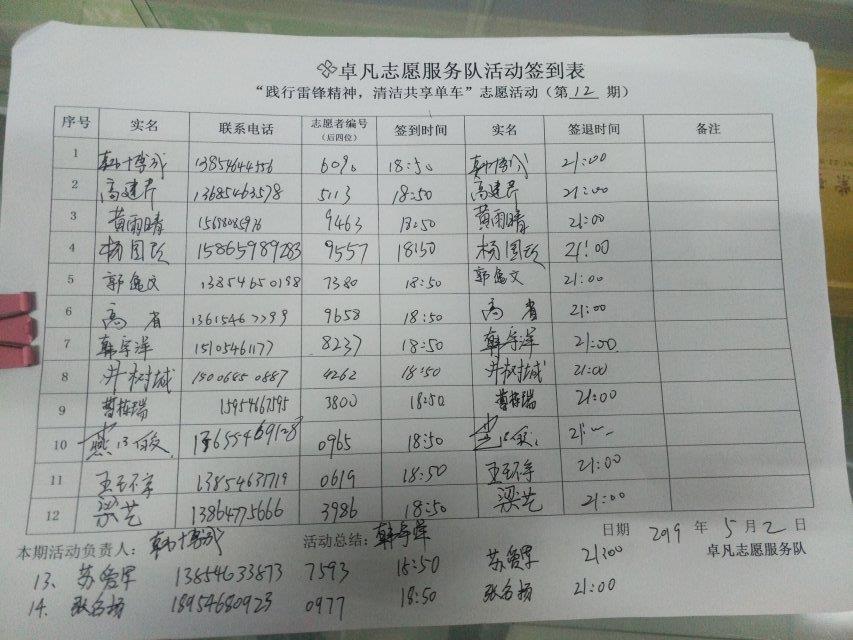 卓凡志愿服务队活动签到表
“践行雷锋精神，清洁共享单车”志愿活动（第 12 期）
序号 实名 联系电话 志愿者编号（后四位） 签到时间 实名 签退时间 备注
1 韩博 13854644556 6090 18:50 韩博 21:00
2 高建芹 13685463578 5113 18:50 高建芹 21:00
3 黄雨晴 9463 18:50 黄雨晴 21:00
4 杨国 15865989283 9557 18:50 杨国 21:00
5 郭 文 13854650198 7380 18:50 郭 文 21:00
6 高省 9658 18:50 高省 21:00
7 韩宇洋 15105461177 8237 18:50 韩宇洋 21:00
8 井树城 15006850887 4262 18:50 井树城 21:00
9 曹梅瑞 15954667595 3800 18:50 曹梅瑞 21:00
10 燕 0965 18:50 21:
11 王 13854637719 0619 18:50 王 21:00
12 梁艺 13864775666 3986 18:50 梁艺 21:00
本期活动负责人：韩博 活动总结：韩宇洋 日期 2019 年 5 月 2 日
卓凡志愿服务队
13、苏 军 13854633873 7593 18:50 苏 军 21:00
14、张名扬 18954680923 0977 18:50 张名扬 21:00